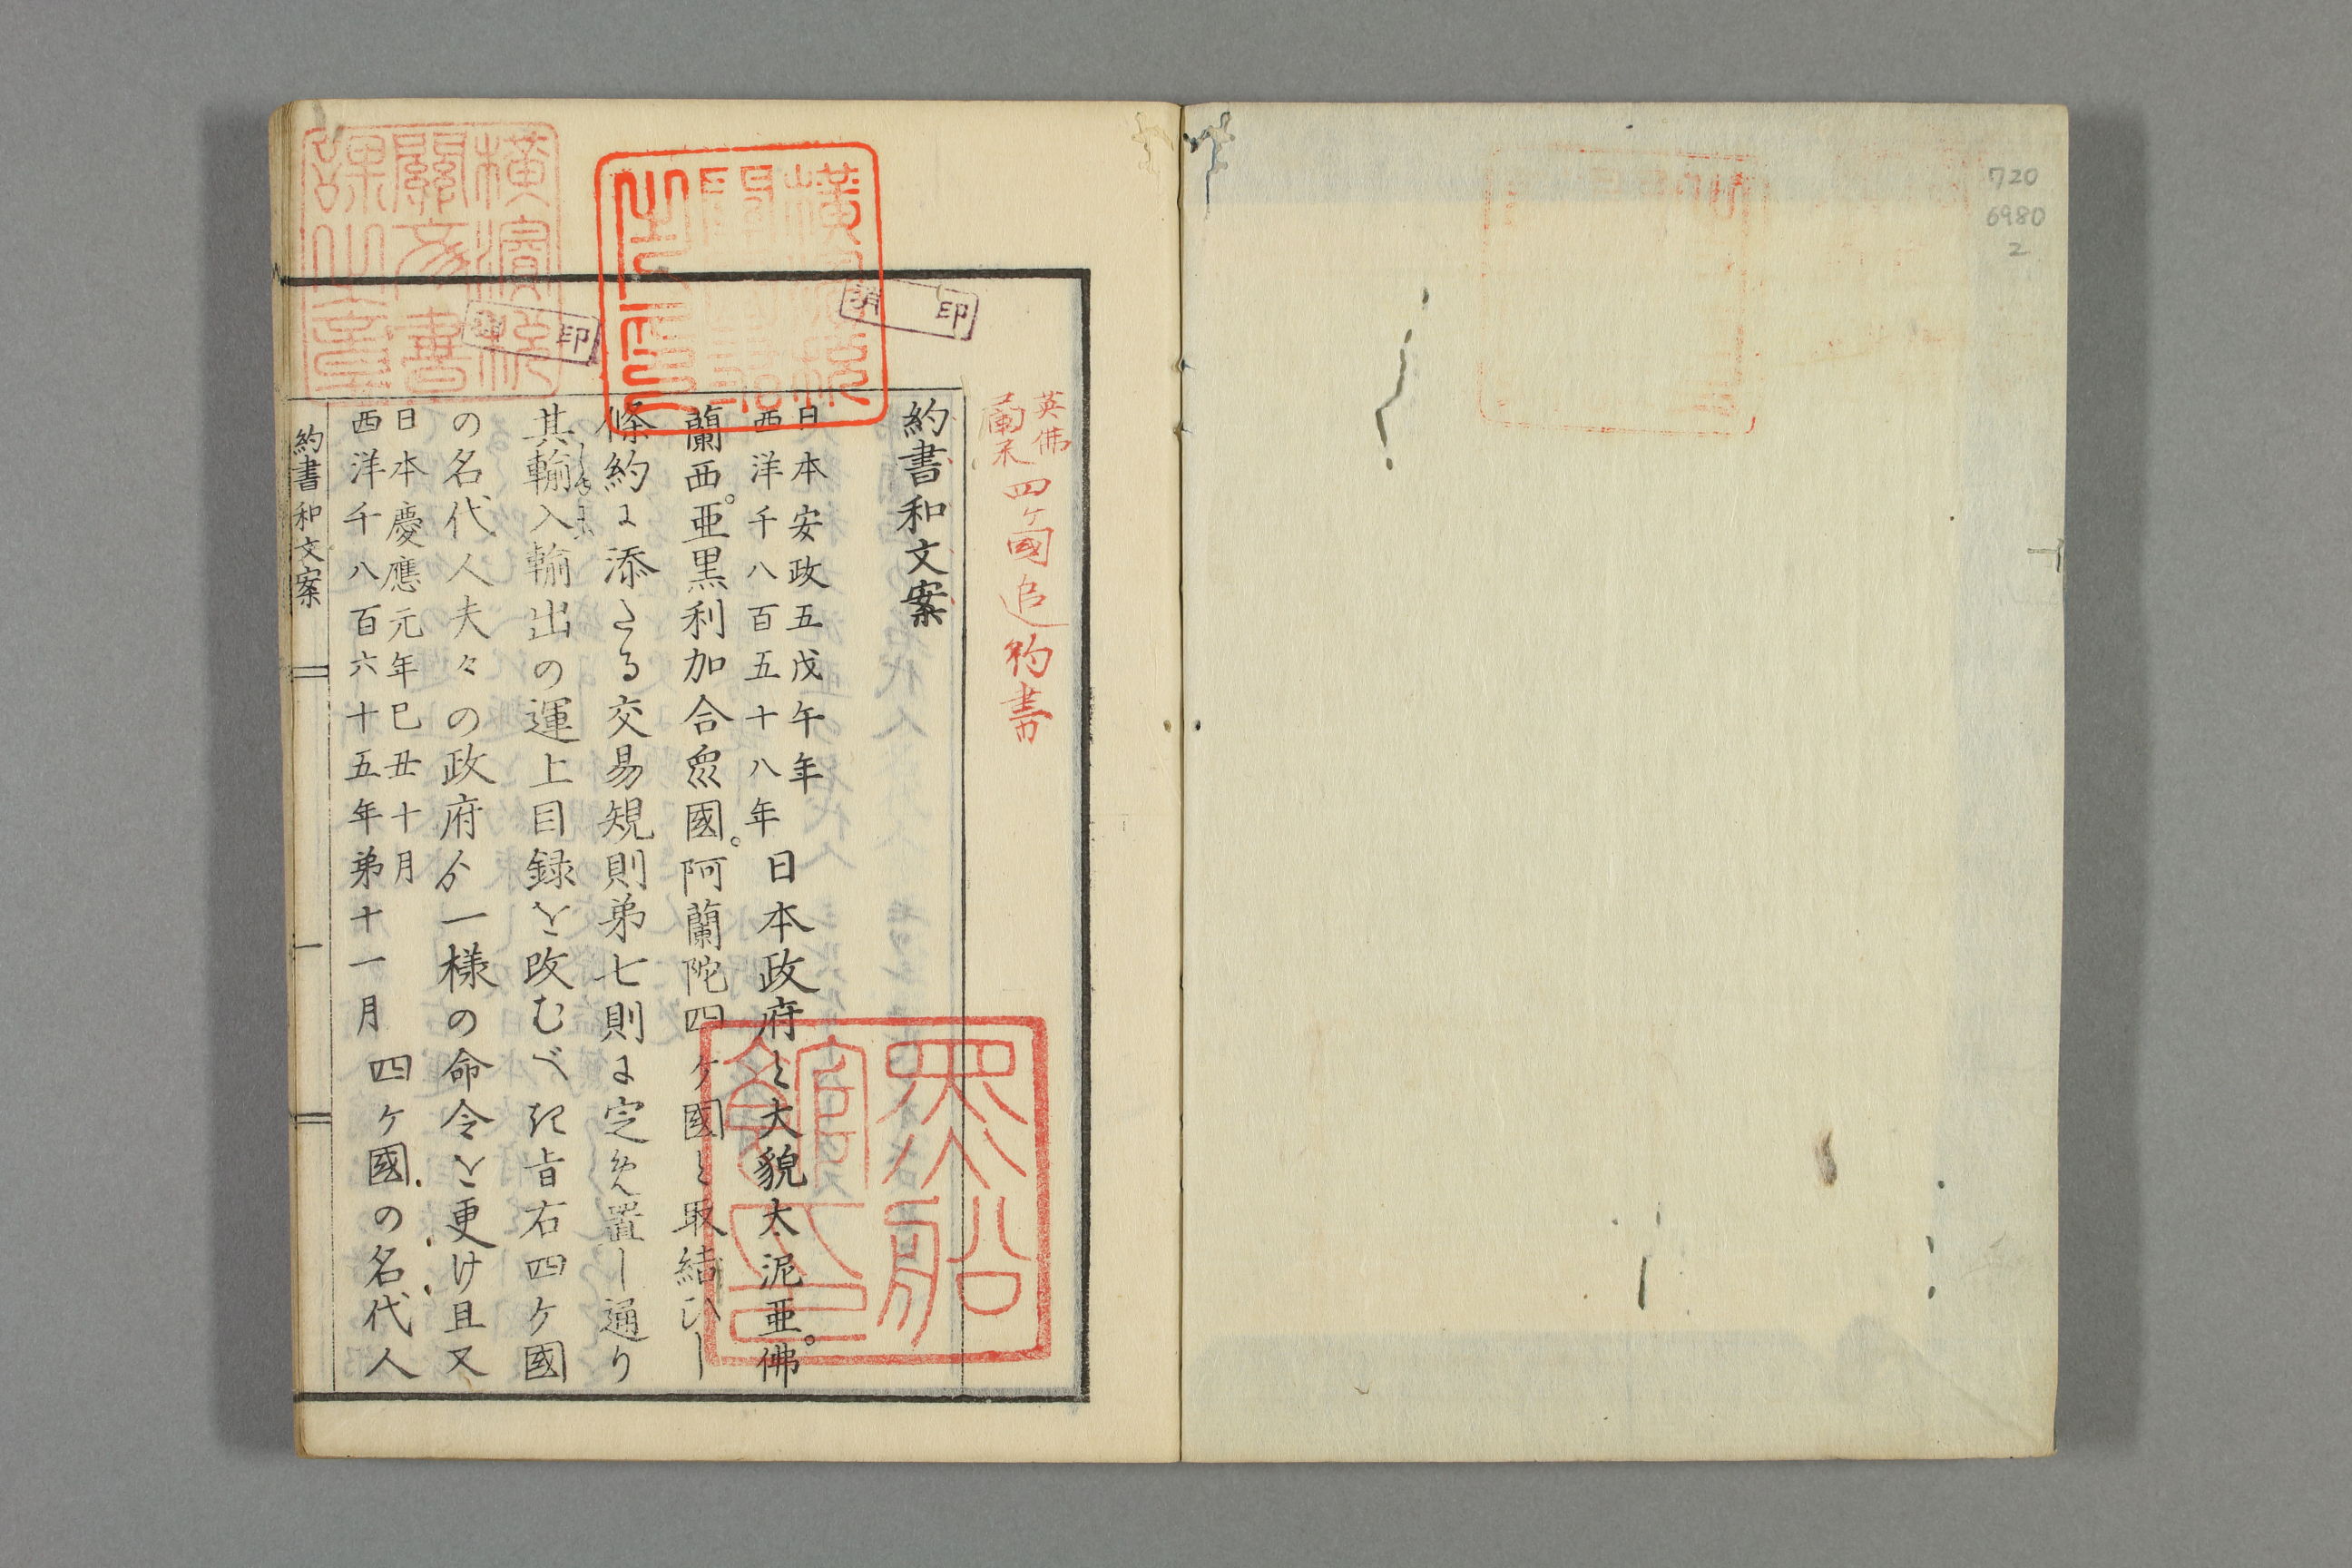 720
6980
2
英佛
蘭米
四ヶ國追約書
約書和文案
日本安政五戊午年
西洋千八百五十八年
日本政府と大貌太泥亜。佛
蘭西。亜黒利加合衆國。阿蘭陀四ヶ國と取結ひし
條約に添たる交易規則弟七則に定め置し通り
其輸入輸出の運上目録を改むべき旨右四ケ國
の名代人夫々の政府ゟ一様の命令を更け且又
日本慶應元年巳丑十月
西洋千八百六十五年弟十一月
四ケ國の名代人
約書和文案
一
横濱税
關文書
課之章
横濱税
關
之印
消印
印